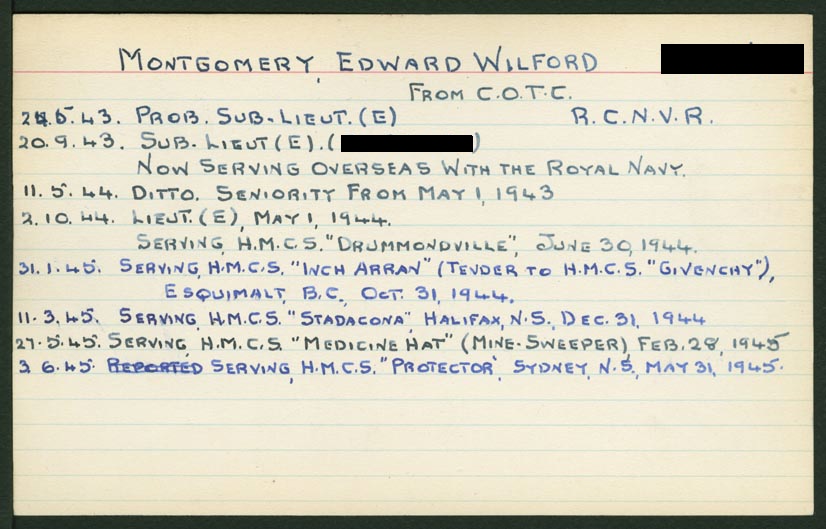 MONTGOMERY, EDWARD WILFORD
FROM C.O.T.C.
PROB. SUB-LIEUT. (E) R.C.N.V.R.
20.9.43. SUB-LIEUT (E). ( )
NOW SERVING OVERSEAS WITH THE ROYAL NAVY.
11.5.44. DITTO. SENIORITY FROM MAY 1, 1943
2.10.44. LIEUT. (E), MAY 1, 1944.
SERVING, H.M.C.S. "DRUMMONDVILLE", JUNE 30, 1944.
31.1.45. SERVING, H.M.C.S. "INCH ARRAN" (TENDER TO H.M.C.S. "GIVENCHY"),
ESQUIMALT, B.C., OCT. 31, 1944.
11.3.45. SERVING, H.M.C.S. "STADACONA", HALIFAX, N.S., DEC. 31, 1944
27.5.45. SERVING, H.M.C.S. "MEDICINE HAT" (MINE-SWEEPER) FEB. 28, 1945
3.6.45. REPORTED SERVING, H.M.C.S. "PROTECTOR", SYDNEY, N.S., MAY 31, 1945.